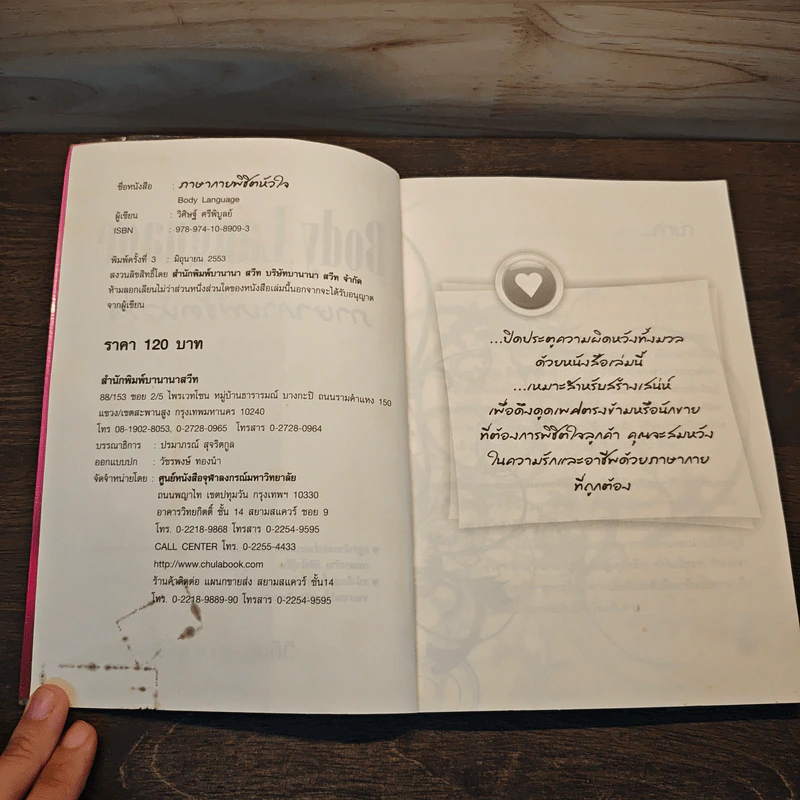 ชื่อหนังสือ : ภาษากายพิชิตหัวใจ
Body Language
ผู้เขียน : วิศิษฐ์ ศรีพิบูลย์
ISBN : 978-974-10-8909-3
พิมพ์ครั้งที่ 3 : มิถุนายน 2553
สงวนลิขสิทธิ์โดย สำนักพิมพ์บานานา สวีท บริษัทบานานา สวีท จำกัด
ห้ามลอกเลียนไม่ว่าส่วนหนึ่งส่วนใดของหนังสือเล่มนี้นอกจากจะได้รับอนุญาต
จากผู้เขียน
ราคา 120 บาท
สำนักพิมพ์บานานาสวีท
88/153 ซอย 2/5 ไพรเวทโซน หมู่บ้านธารารมณ์ บางกะปิ ถนนรามคำแหง 150
แขวง/เขตสะพานสูง กรุงเทพมหานคร 10240
โทร 08-1902-8053, 0-2728-0965 โทรสาร 0-2728-0964
บรรณาธิการ : ปรมาภรณ์ สุจริตกูล
ออกแบบปก : วัชรพงษ์ ทองนำ
จัดจำหน่ายโดย : ศูนย์หนังสือจุฬาลงกรณ์มหาวิทยาลัย
ถนนพญาไท เขตปทุมวัน กรุงเทพฯ 10330
อาคารวิทยกิตติ์ ชั้น 14 สยามสแควร์ ซอย 9
โทร. 0-2218-9868 โทรสาร 0-2254-9595
CALL CENTER โทร. 0-2255-4433
http://www.chulabook.com
ร้านค้าติดต่อ แผนกขายส่ง สยามสแควร์ ชั้น14
โทร. 0-2218-9889-90 โทรสาร 0-2254-9595
...ปิดประตูความผิดหวังทั้งมวล
ด้วยหนังสือเล่มนี้
...เหมาะสำหรับสร้างเสน่ห์
เพื่อดึงดูดเพศตรงข้ามหรือนักขาย
ที่ต้องการพิชิตใจลูกค้า คุณจะสมหวัง
ในความรักและอาชีพด้วยภาษากาย
ที่ถูกต้อง